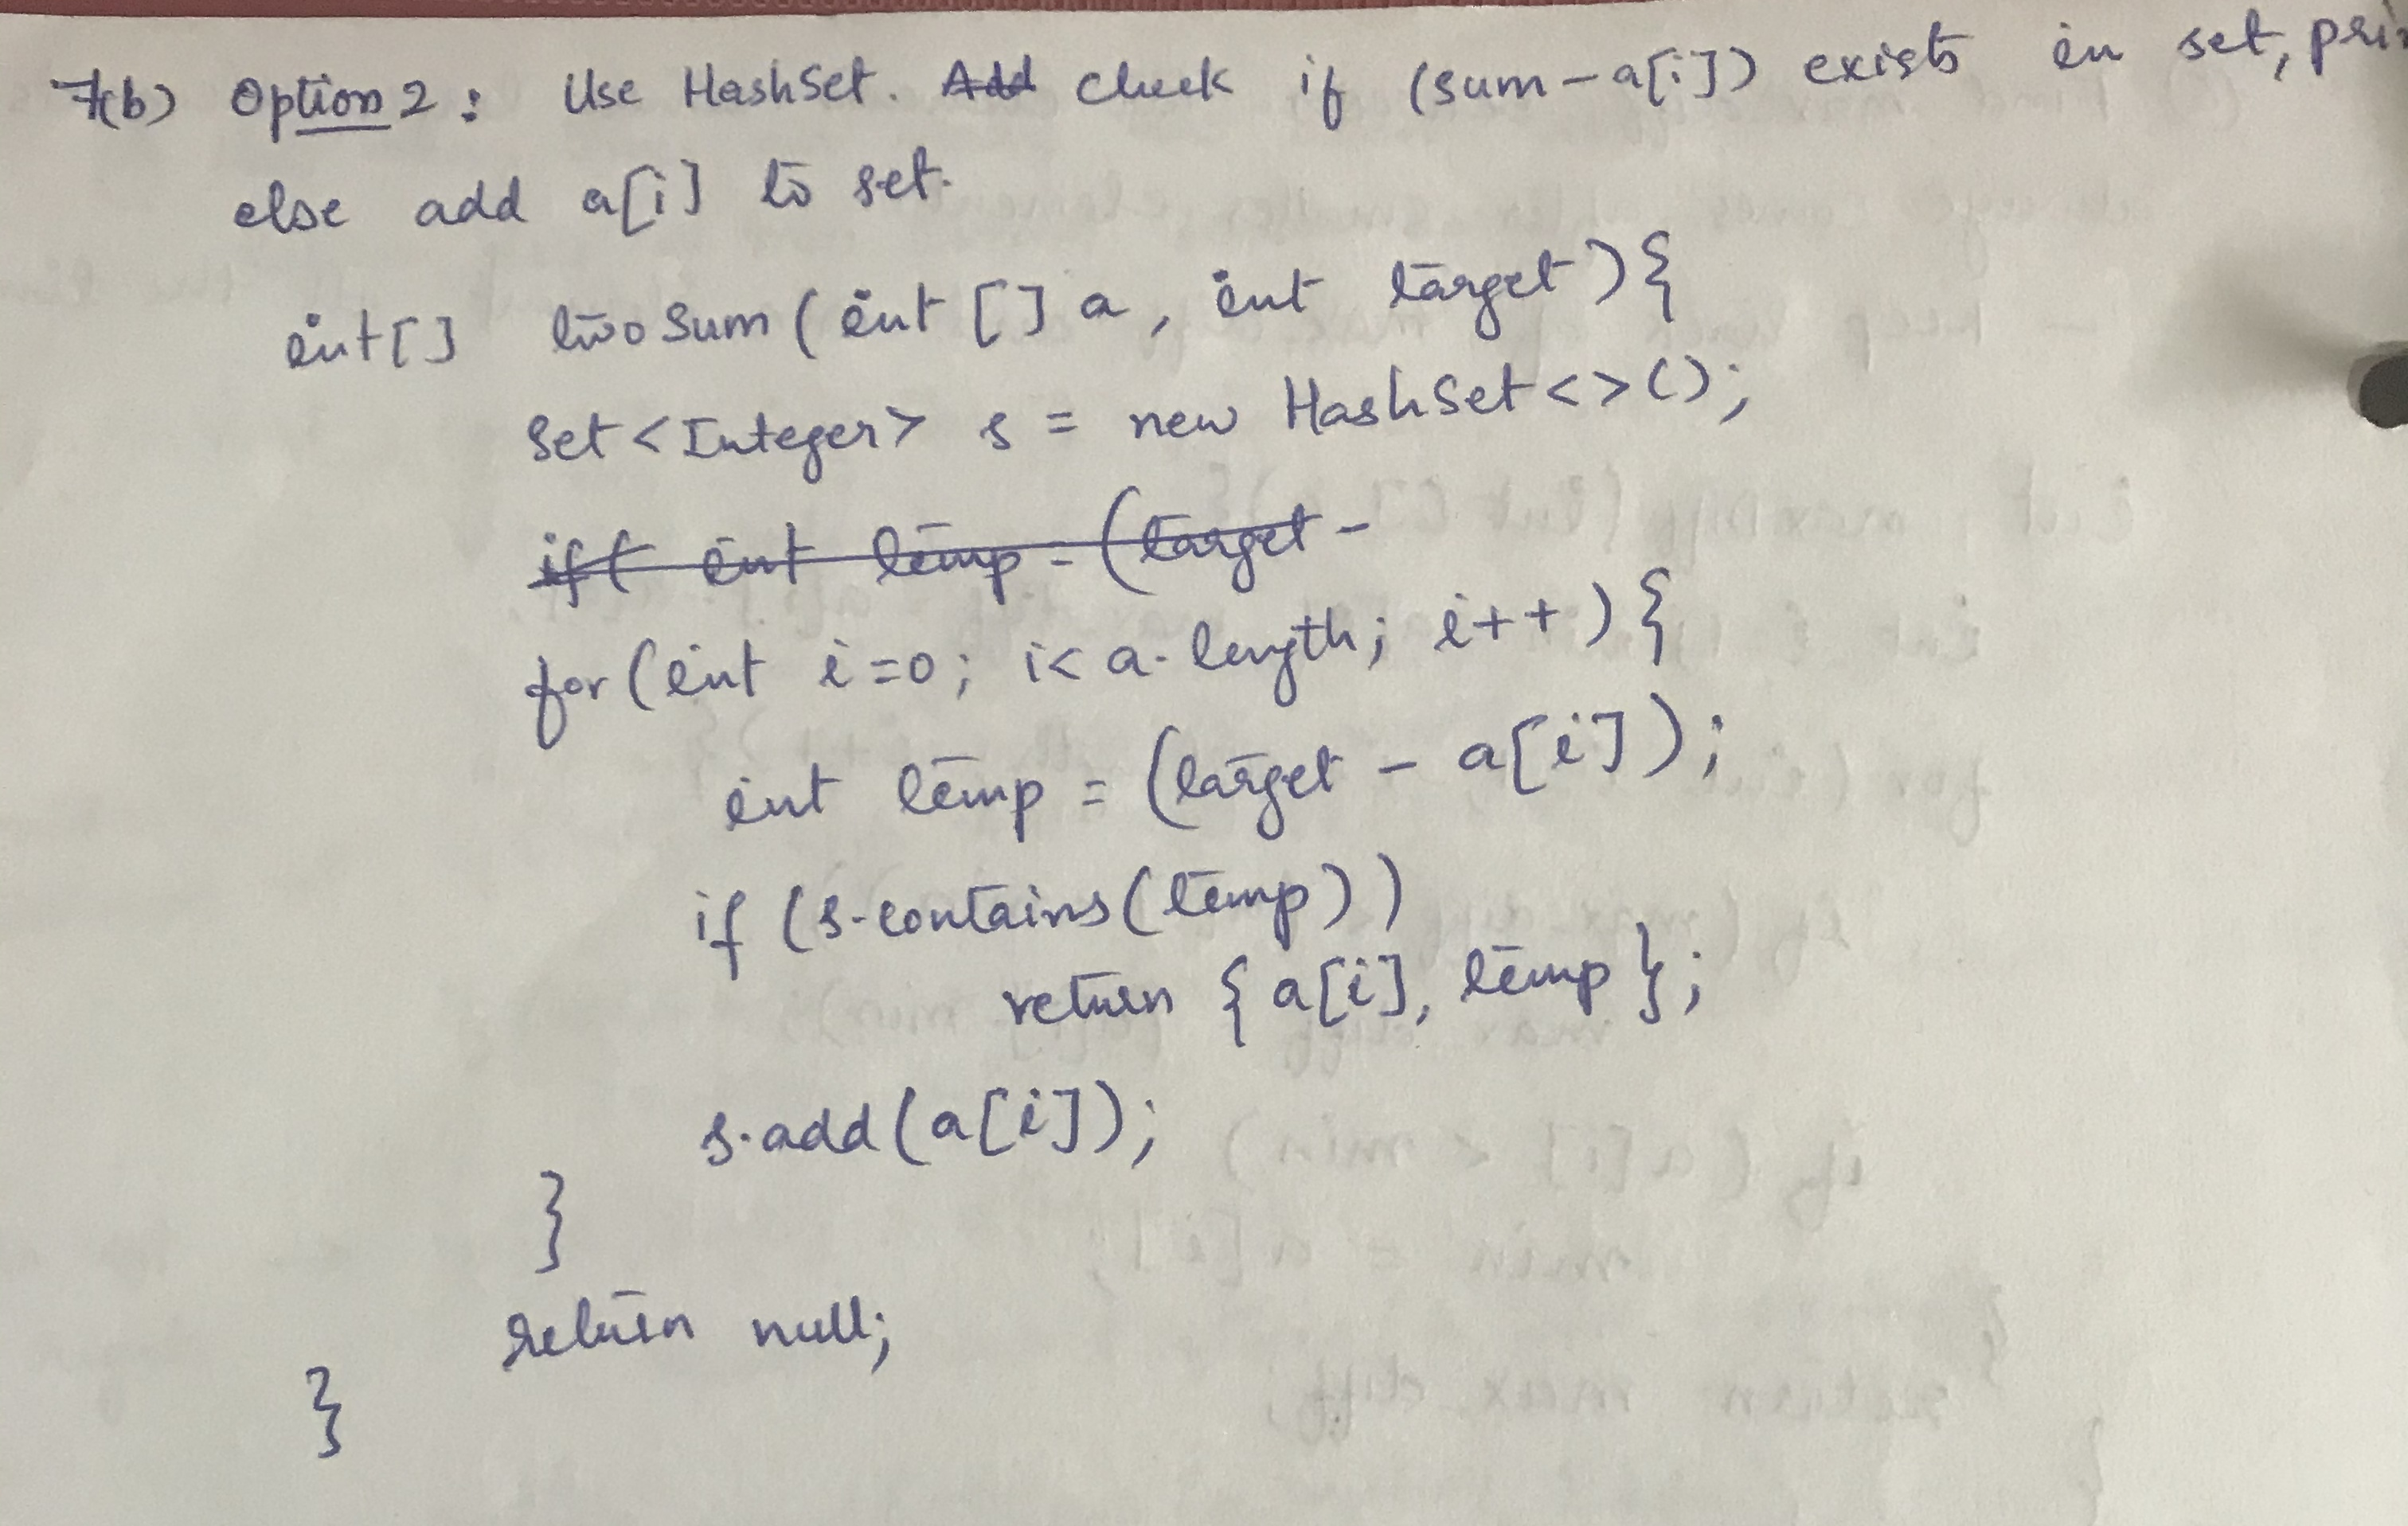 7(b) Option 2: Use HashSet. Add Check if (sum-a[i]) exists in set,
else add a[i] to set.
int[] twoSum(int[] a, int target){
Set<Integer> s = new HashSet<>();
if( int temp = (target -
for(int i=0; i< a.length; i++){
int temp = (target - a[i]);
if (s.contains(temp))
return {a[i], temp};
s.add(a[i]);
}
return null;
}